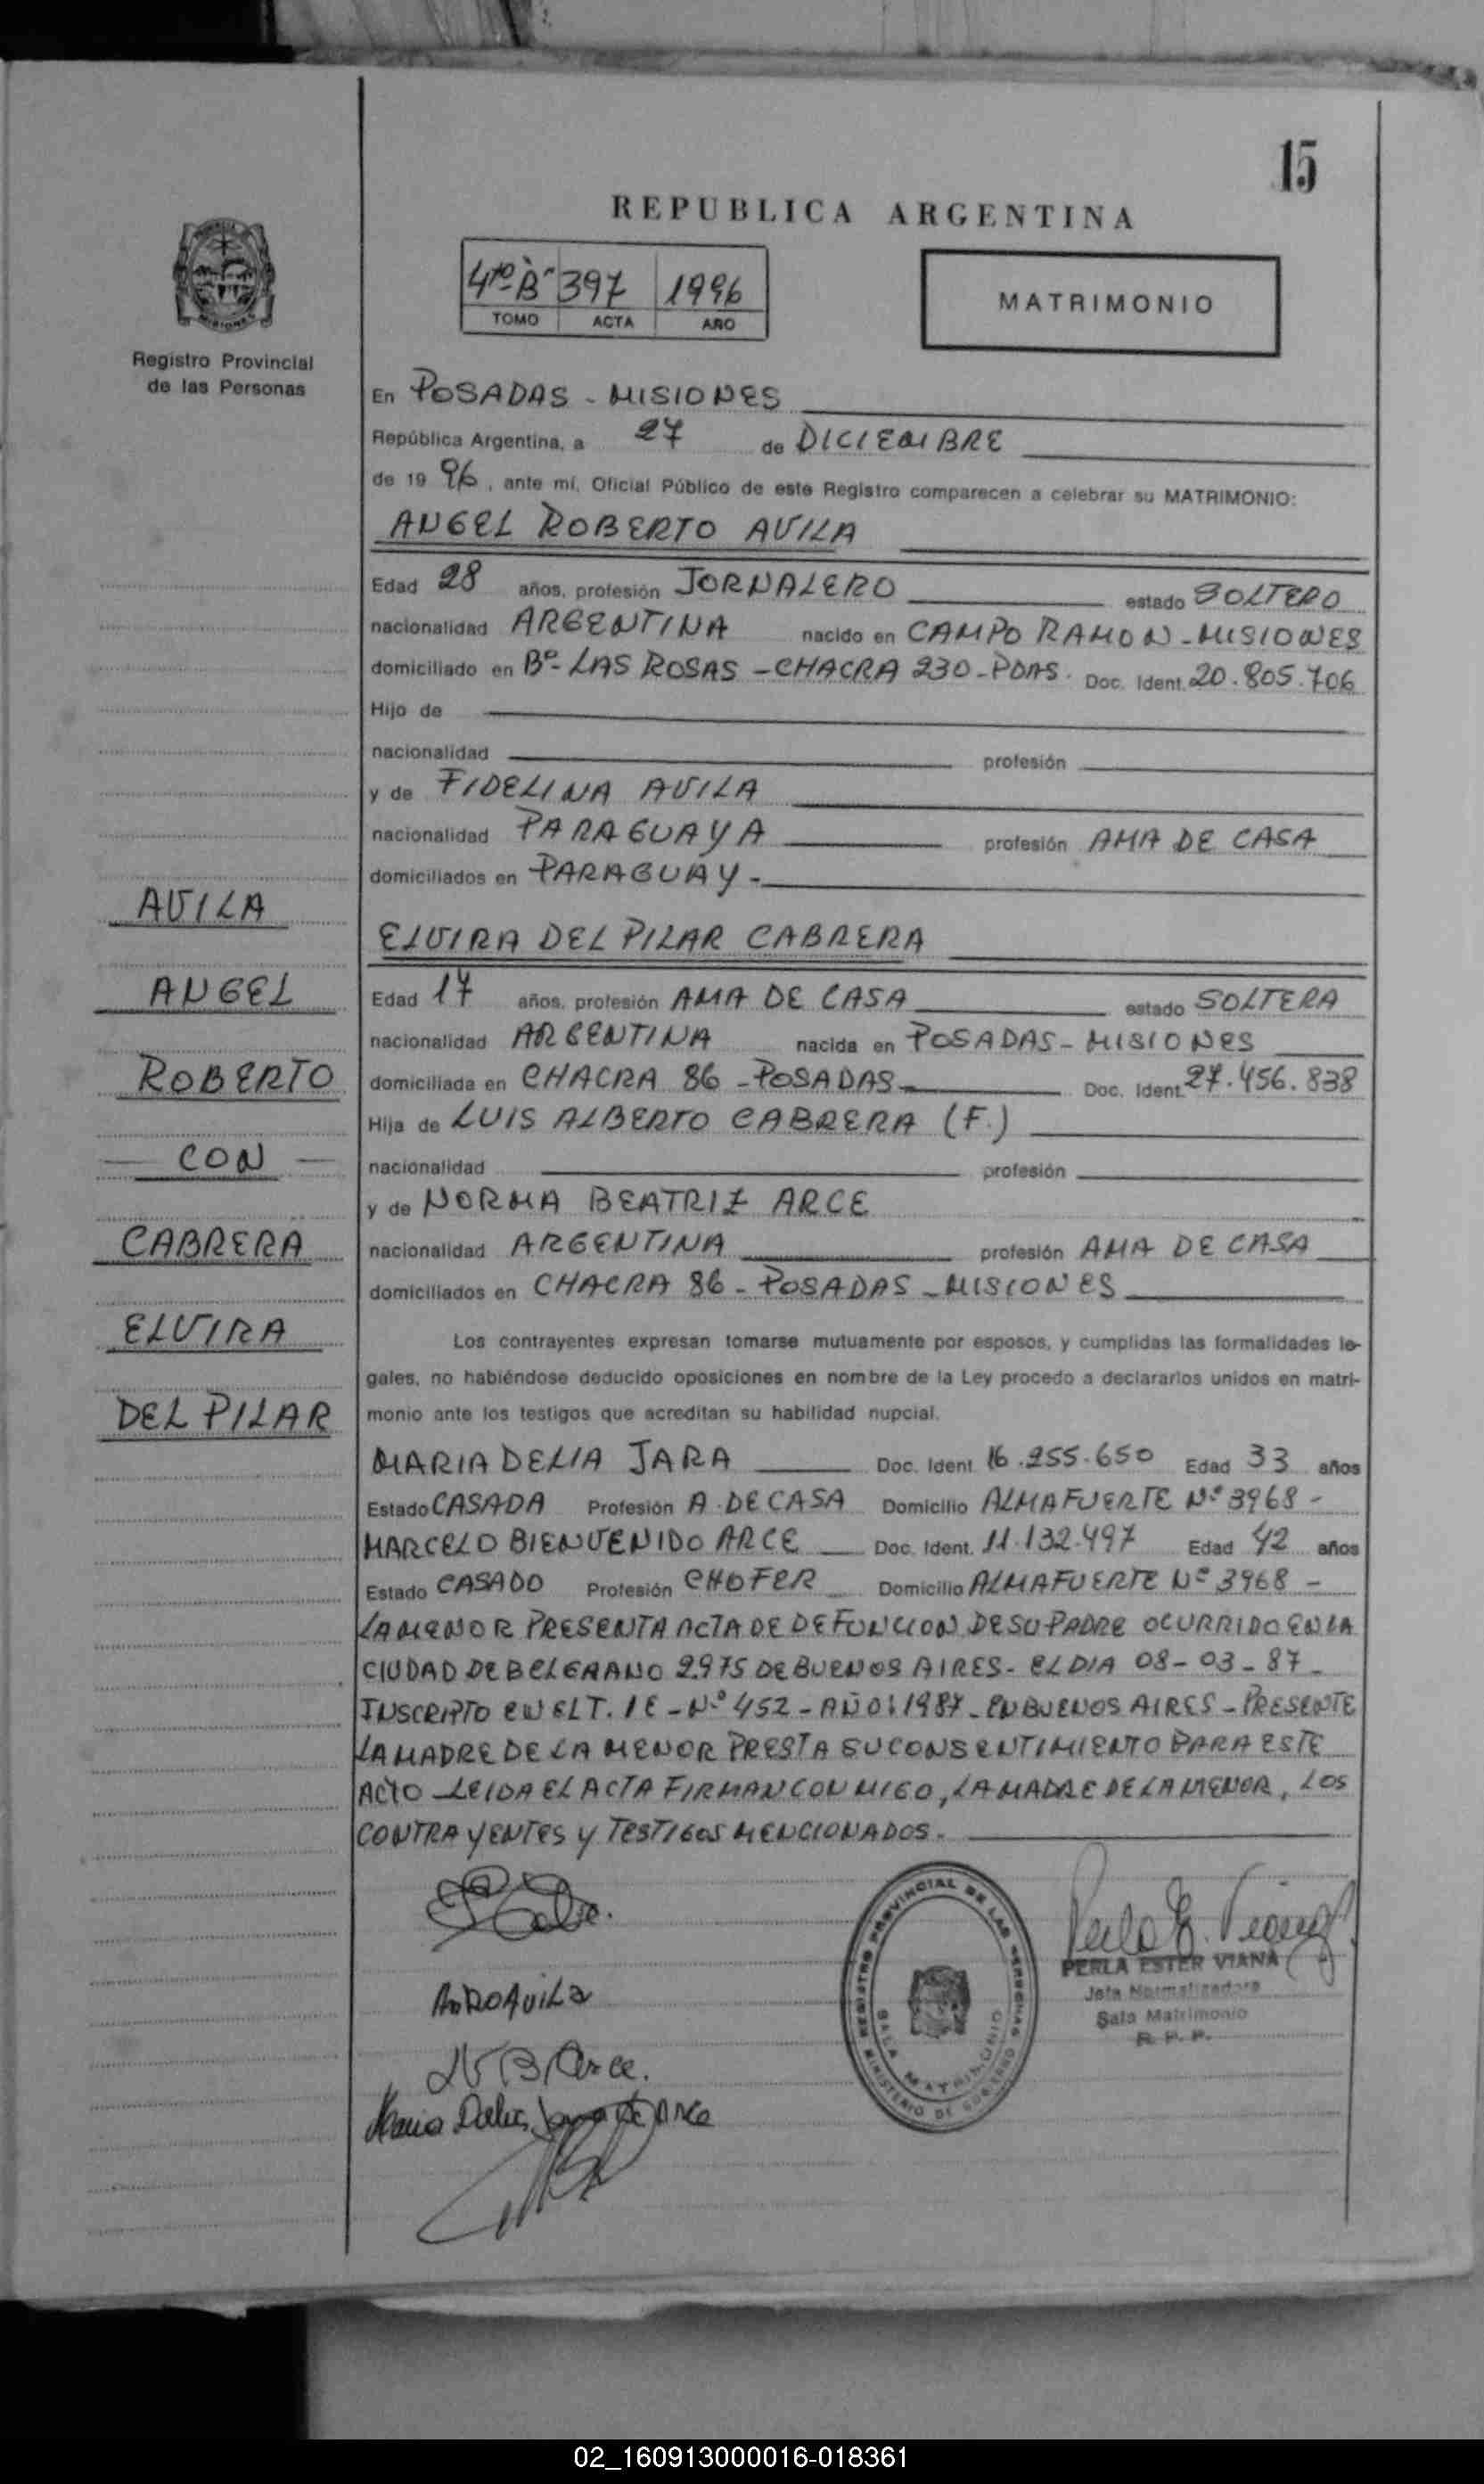 15
REPUBLICA ARGENTINA
4to "B" 397 1996
TOMO ACTA AÑO
MATRIMONIO
Registro Provincial
de las Personas
En POSADAS - MISIONES
República Argentina, a 27 de DICIEMBRE
de 19 96, ante mí, Oficial Público de este Registro comparecen a celebrar su MATRIMONIO:
ANGEL ROBERTO AVILA
Edad 28 años, profesión JORNALERO estado SOLTERO
nacionalidad ARGENTINA nacido en CAMPO RAMON - MISIONES
domiciliado en Bº- LAS ROSAS - CHACRA 230 - PDAS. Doc. Ident. 20.805.706
Hijo de
nacionalidad profesión
y de FIDELINA AVILA
nacionalidad PARAGUAYA profesión AMA DE CASA
domiciliados en PARAGUAY -
ELVIRA DEL PILAR CABRERA
Edad 17 años, profesión AMA DE CASA estado SOLTERA
nacionalidad ARGENTINA nacida en POSADAS - MISIONES
domiciliada en CHACRA 86 - POSADAS Doc. Ident. 27.456.838
Hija de LUIS ALBERTO CABRERA (F.)
nacionalidad profesión
y de NORMA BEATRIZ ARCE
nacionalidad ARGENTINA profesión AMA DE CASA
domiciliados en CHACRA 86 - POSADAS - MISIONES
AVILA
ANGEL
ROBERTO
- CON -
CABRERA
ELVIRA
DEL PILAR
Los contrayentes expresan tomarse mutuamente por esposos, y cumplidas las formalidades le-
gales, no habiéndose deducido oposiciones en nombre de la Ley procedo a declararlos unidos en matri-
monio ante los testigos que acreditan su habilidad nupcial.
MARIA DELIA JARA Doc. Ident 16.255.650 Edad 33 años
Estado CASADA Profesión A. DE CASA Domicilio ALMAFUERTE Nº 3968 -
MARCELO BIENVENIDO ARCE Doc. Ident. 11.132.497 Edad 42 años
Estado CASADO Profesión CHOFER Domicilio ALMAFUERTE Nº 3968 -
LA MENOR PRESENTA ACTA DE DEFUNCION DE SU PADRE OCURRIDO EN LA
CIUDAD DE BELGRANO 2.975 DE BUENOS AIRES - EL DIA 08-03-87 -
INSCRIPTO EN EL T. 1E - Nº 452 - AÑO: 1987 - EN BUENOS AIRES - PRESENTE
LA MADRE DE LA MENOR PRESTA SU CONSENTIMIENTO PARA ESTE
ACTO LEIDA EL ACTA FIRMAN CONMIGO, LA MADRE DE LA MENOR, LOS
CONTRAYENTES Y TESTIGOS MENCIONADOS.
AVILA
N B Arce.
Maria Delia Jara de Arce
REGISTRO PROVINCIAL DE LAS PERSONAS
SALA MATRIMONIO
MINISTERIO DE GOBIERNO
Perla E. Viana
PERLA ESTER VIANA
Jefa Normalizadora
Sala Matrimonio
R. P. P.
02_160913000016-018361